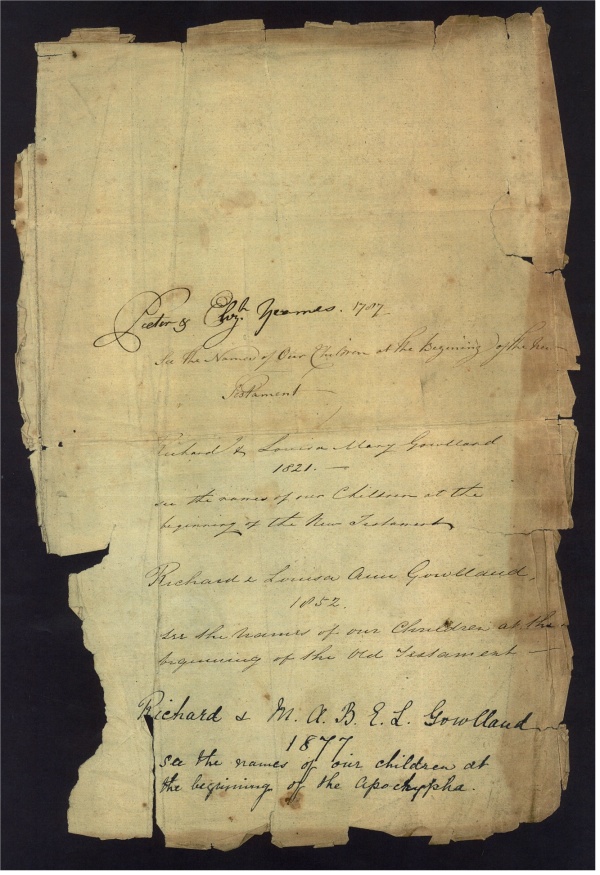 Peeter & Elizh. Yeames. 1787
See the Names of Our Children at the Begining of the New
Testament —
Richard & Louisa Mary Gowlland
1821. —
see the names of our Children at the
beginning of the New Testament
Richard & Louisa Ann Gowlland.
1852.
see the Names of our Children at the
beginning of the Old Testament —
Richard & M. A. B. E. L. Gowlland
1877
see the names of our children at
the beginning of the Apochypha.